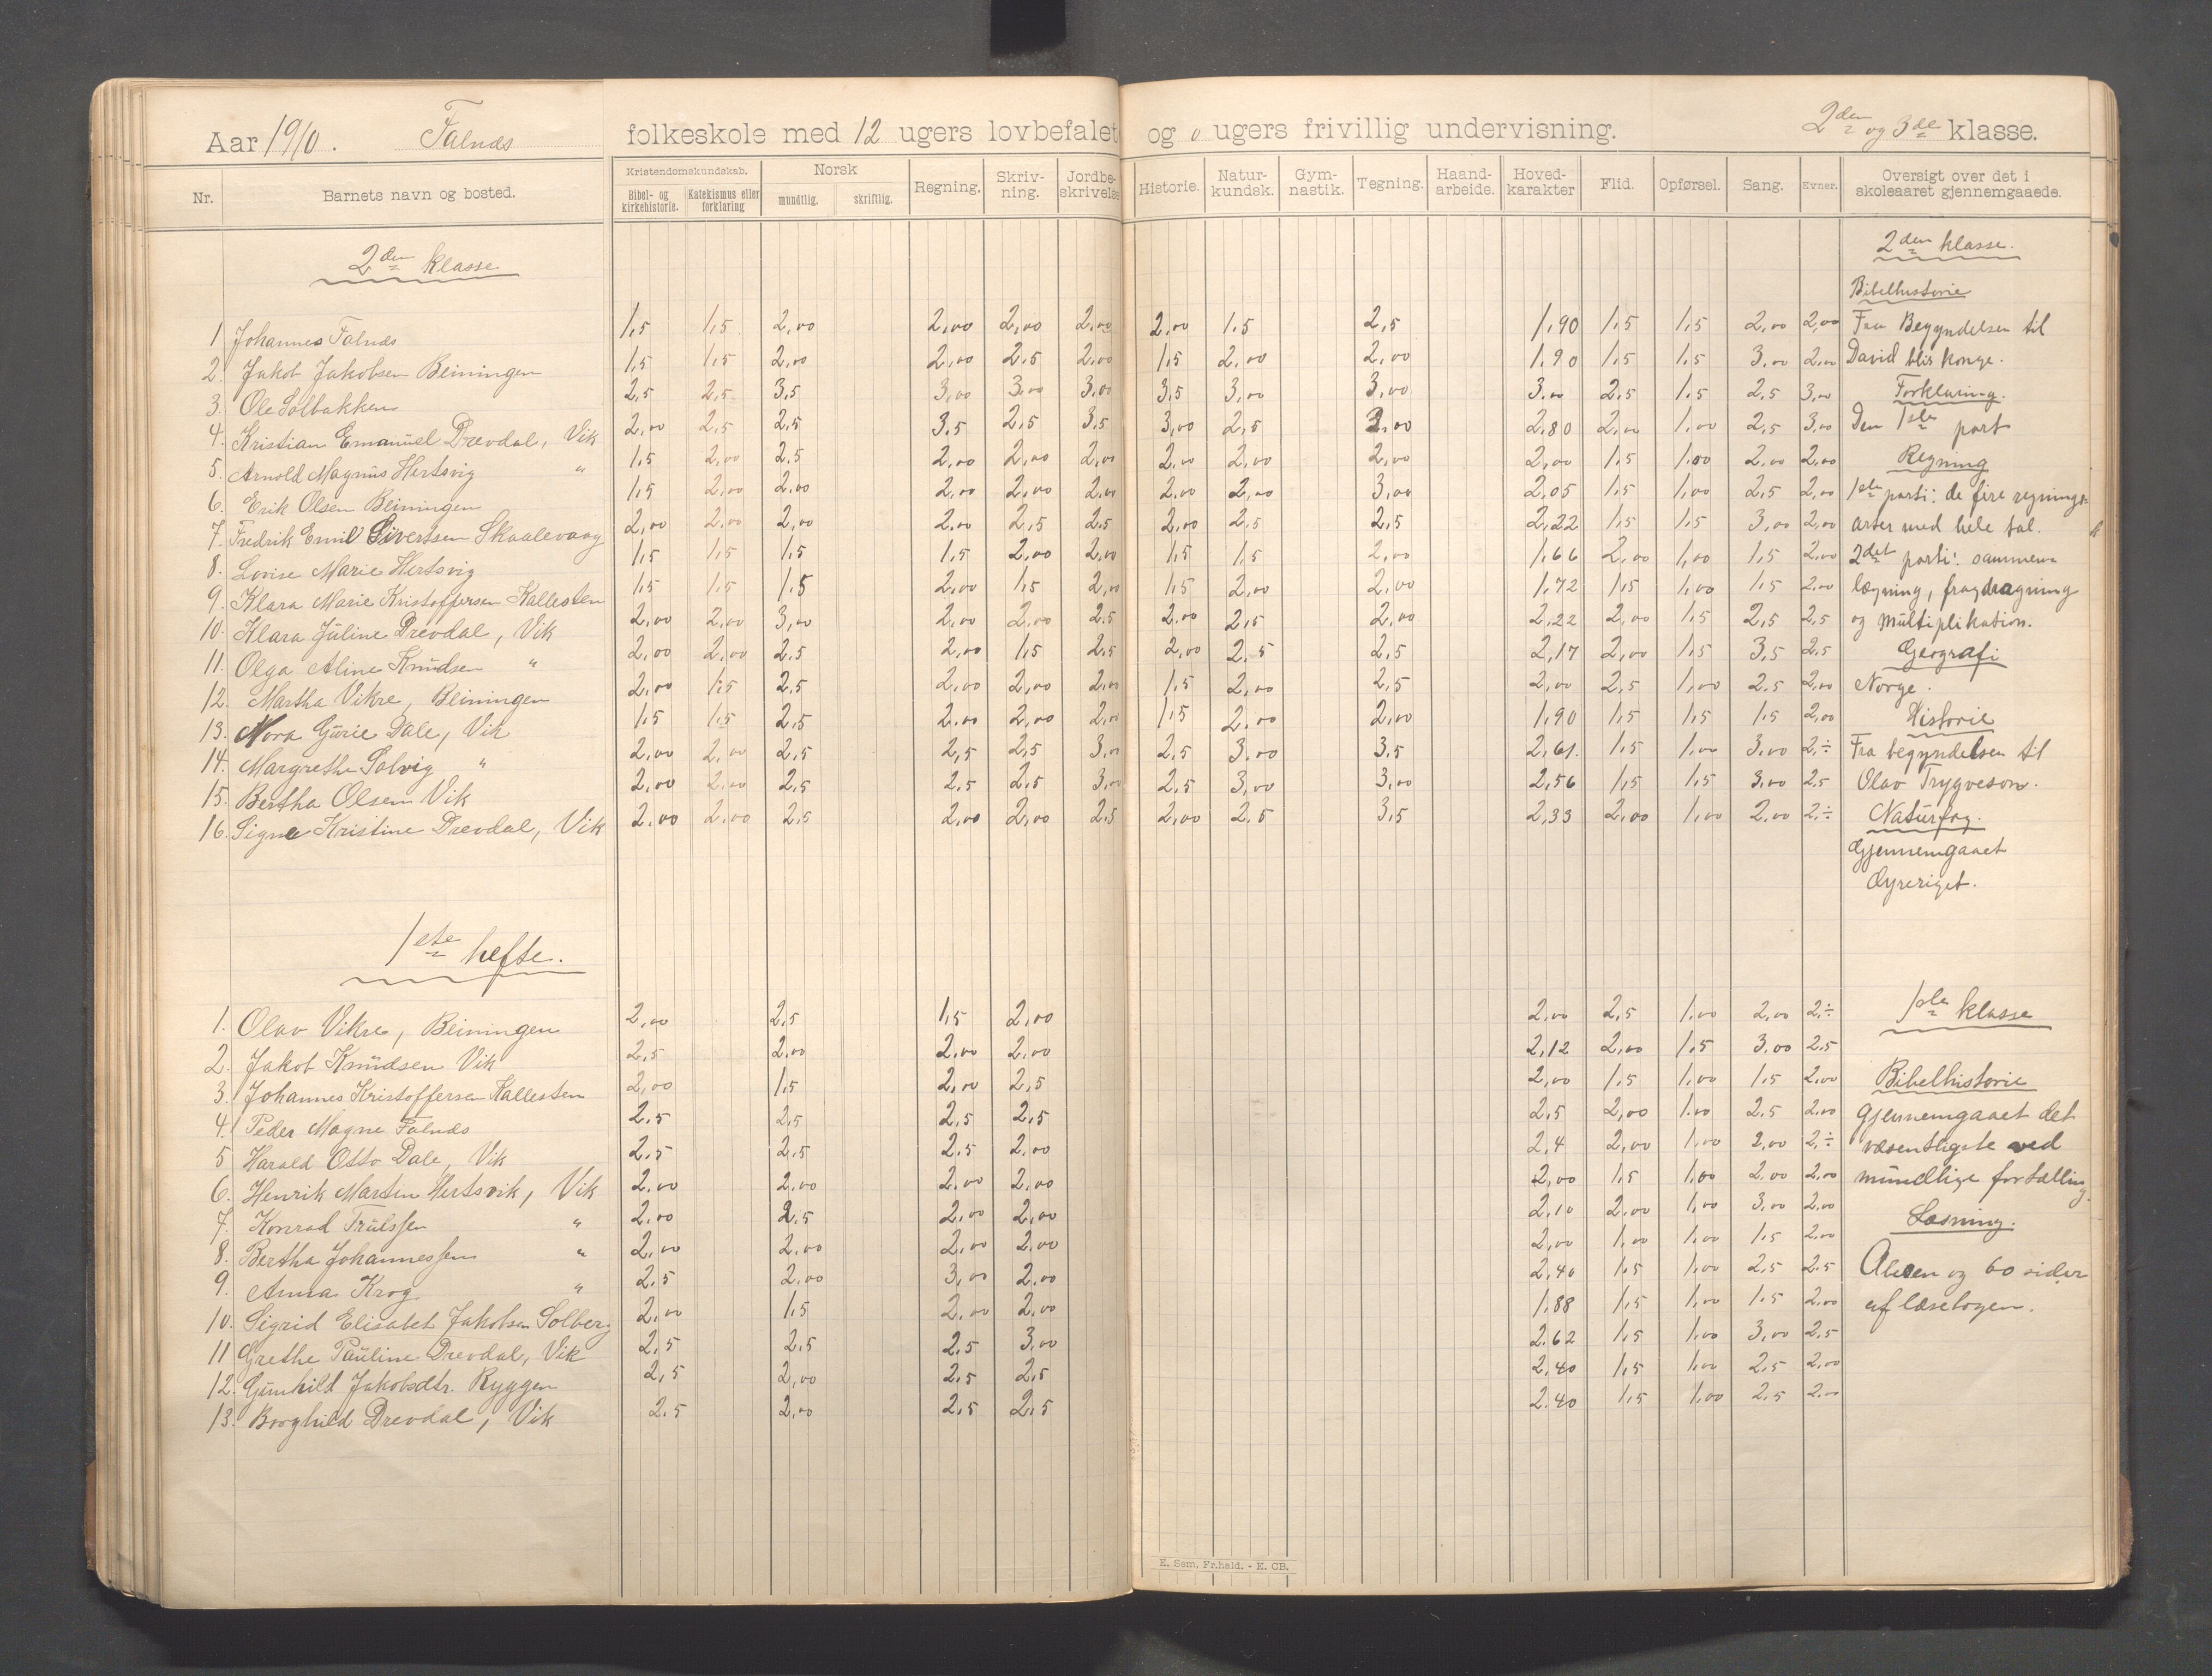 Aar 1910. Falnds folkeskole med 12 ugers lovbefalet og 0 ugers frivillig undervisning. 2den og 3de klasse.
Nr. Barnets navn og bosted. Kristendomskundskab. Bibel- og kirkehistorie. Katekismus eller forklaring Norsk mundtlig. skriftlig. Regning. Skriv-ning. Jordbe-skrivelse Historie. Natur-kundsk. Gym-nastik. Tegning. Haand-arbeide. Hoved-karakter Flid. Opførsel. Sang. Evner. Oversigt over det i skoleaaret gjennemgaaede.
2den klasse
2den klasse.
Bibelhistorie
1 Johannes Falnds 1,5 1,5 2,00 2,00 2,00 2,00 2,00 1,5 2,5 1,90 1,5 1,5 2,00 2,00 Fra Begyndelsen til
2. Jakob Jakobsen Beiningen 1,5 1,5 2,00 2,00 2,5 2,00 1,5 2,00 2,00 1,90 1,5 1,5 3,00 2,00 David blir konge.
3. Ole Solbakken 2,5 2,5 3,5 3,00 3,00 3,00 3,5 3,00 3,00 3,00 2,5 1,5 2,5 3,00 Forklaring.
4. Kristian Emanuel Drevdal, Vik 2,00 2,5 2,5 3,5 2,5 3,5 3,00 2,5 3,00 2,80 2,00 1,00 2,5 3,00 Den 1ste part
5. Arnold Magnus Hertsvig " 1,5 2,00 2,5 2,00 2,00 2,00 2,00 2,00 2,00 2,00 1,5 1,00 2,00 2,00 Regning
6. Erik Olsen Beiningen 1,5 2,00 2,00 2,00 2,00 2,00 2,00 2,00 3,00 2,05 1,5 1,00 2,5 2,00 1ste parti: de fire regnings
7. Fredrik Emil Sivertsen Skaalevaag 2,00 2,00 2,00 2,00 2,5 2,5 2,00 2,5 2,5 2,22 1,5 1,5 3,00 2,00 arter med hele tal.
8. Lovise Marie Hertsvig 1,5 1,5 1,5 1,5 2,00 2,00 1,5 1,5 2,00 1,66 2,00 1,00 1,5 2,00 2det parti: sammen
9. Klara Marie Kristoffersen Kallesten 1,5 1,5 1,5 2,00 1,5 2,00 1,5 2,00 2,00 1,72 1,5 1,00 1,5 2,00 lægning, fragdragning
10. Klara Juline Drevdal, Vik 2,00 2,00 3,00 2,00 2,00 2,5 2,00 2,5 2,00 2,22 2,00 1,5 2,5 2,5 og multiplikation.
11. Olga Aline Knudsen " 2,00 2,00 2,5 2,00 1,5 2,5 2,00 2,5 2,5 2,17 2,00 1,5 3,5 2,5 Geografi
12. Martha Vikre, Beiningen 2,00 1,5 2,5 2,00 2,00 2,00 1,5 2,00 2,5 2,00 2,5 1,00 2,5 2,00 Norge.
13. Nora Gurie Dale, Vik 1,5 1,5 2,5 2,00 2,00 2,00 1,5 2,00 2,00 1,90 1,5 1,5 1,5 2,00 Historie
14. Margrethe Solvig " 2,00 2,00 2,5 2,5 2,5 3,00 2,5 3,00 3,5 2,61. 1,5 1,00 3,00 2,÷ Fra begyndelsen til
15. Bertha Olsen Vik 2,00 2,00 2,5 2,5 2,5 3,00 2,5 3,00 3,00 2,56 1,5 1,5 3,00 2,5 Olav Trygveson.
16. Signe Kristine Drevdal, Vik 2,00 2,00 2,5 2,00 2,00 2,5 2,00 2,5 3,5 2,33 2,00 1,00 2,00 2,÷ Naturfag.
Gjennemgaaet
Dyreriget.
1ste hefte.
1. Olav Vikre, Beiningen 2,00 2,5 1,5 2,00 2,00 2,5 1,00 2,00 2,÷ 1ste klasse
2. Jakob Knudsen Vik 2,5 2,00 2,00 2,00 2,12 2,00 1,5 3,00 2,5
3. Johannes Kristoffersen Kallesten 2,00 1,5 2,00 2,5 2,00 1,5 1,00 1,5 2,00 Bibelhistorie
4. Peder Magne Falnds 2,5 2,5 2,5 2,5 2,5 2,00 1,00 2,5 2,00 Gjennemgaaet det
5 Harald Otto Dale, Vik 2,5 2,5 2,5 2,00 2,4 2,00 1,00 2,00 2,÷ væsentligste ved
6. Henrik Martin Hertsvik, Vik 2,00 2,00 2,00 2,00 2,00 1,5 1,00 2,00 2,00 mundtlige fortælling.
7. Konrad Trulssen " 2,00 2,5 2,00 2,00 2,10 2,00 1,00 3,00 2,00 Læsning.
8. Bertha Johannessen " 2,00 2,00 2,00 2,00 2,00 1,00 1,00 1,5 2,00
9. Anna Krog " 2,5 2,00 3,00 2,00 2,40 1,5 1,00 2,5 2,5 Abcen og 60 sider
10. Sigrid Elisabet Jakobsen Solberg 2,00 1,5 2,00 2,00 1,88 1,5 1,00 1,5 2,00 af læsebogen.
11 Grethe Pauline Drevdal, Vik 2,5 2,5 2,5 3,00 2,62 1,5 1,00 3,00 2,5
12. Gunhild Jakobsdtr. Ryggen 2,5 2,00 2,5 2,5 2,40 1,5 1,00 2,5 2,00
13. Borghild Drevdal, Vik 2,5 2,00 2,5 2,5 2,40 1,5 1,00 2,5 2,00
E. Sem, Fr.hald. - E. CB.